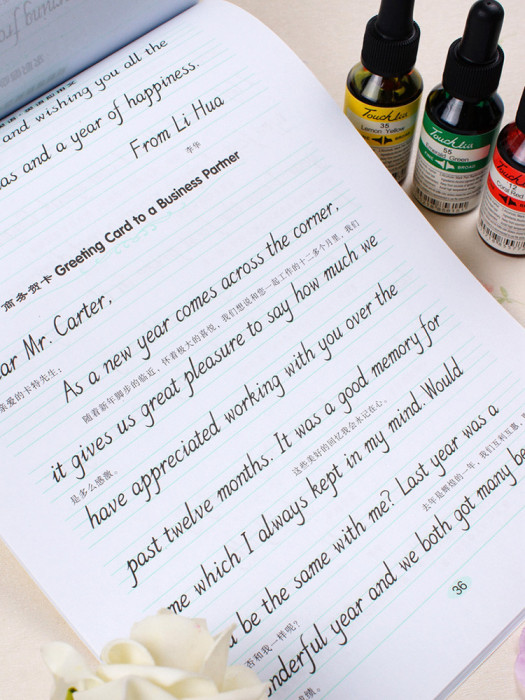 and wishing you all the
as and a year of happiness.
From Li Hua
李华
商务贺卡 Greeting Card to a Business Partner
ar Mr. Carter,
亲爱的卡特先生：
As a new year comes across the corner,
随着新年脚步的临近，怀着极大的喜悦，我们想说和您一起工作的十二多个月里，我们
it gives us great pleasure to say how much we
是多么感激。
have appreciated working with you over the
past twelve months. It was a good memory for
这些美好的回忆我会永记在心。
me which I always kept in my mind. Would
be the same with me? Last year was a
否和我一样呢？
去年是辉煌的一年，我们互利互惠，
nderful year and we both got many be
36
TouchLea
35
Lemon Yellow
BROAD
TouchLea
55
Green
FINE BROAD
12
Coral Red